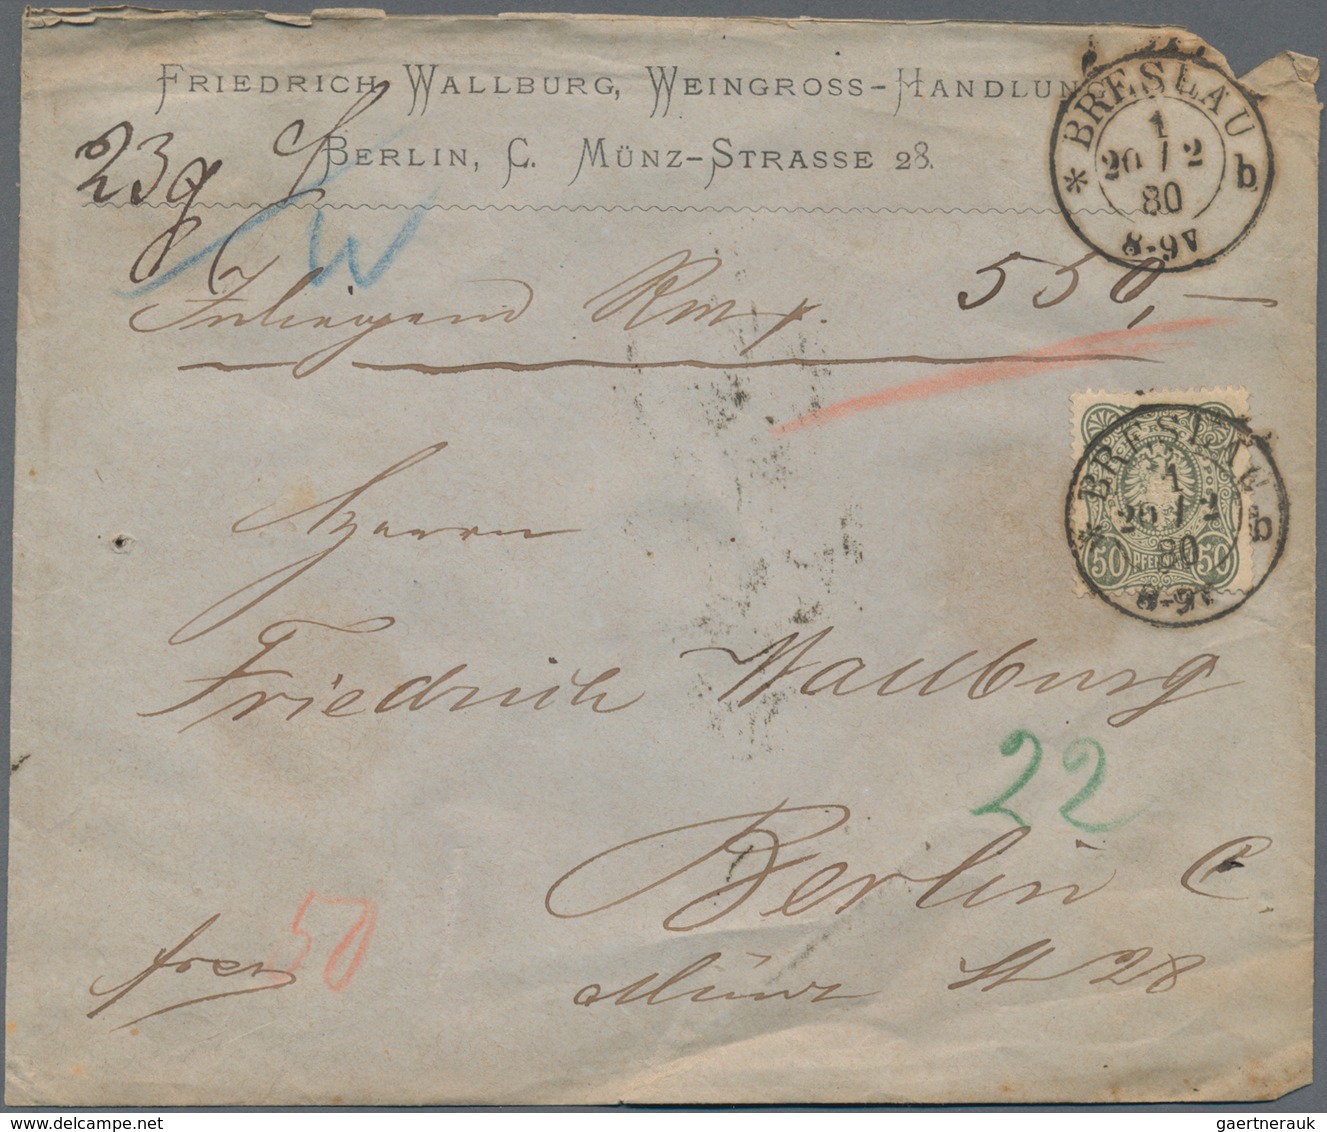 FRIEDRICH WALLBURG, WEINGROSS-HANDLUN
BERLIN, C. MÜNZ-STRASSE 28.
* BRESLAU b.
1
20 / 2
80
8-9V
23g
W
Inliegend Rm 550,—
* BRESLAU b
1
20 / 2
80
8-9V
50 PFENNIG 50
Herrn
Friedrich Wallburg
22
Berlin C.
Münz St 28
frei
50
gaertnerauk